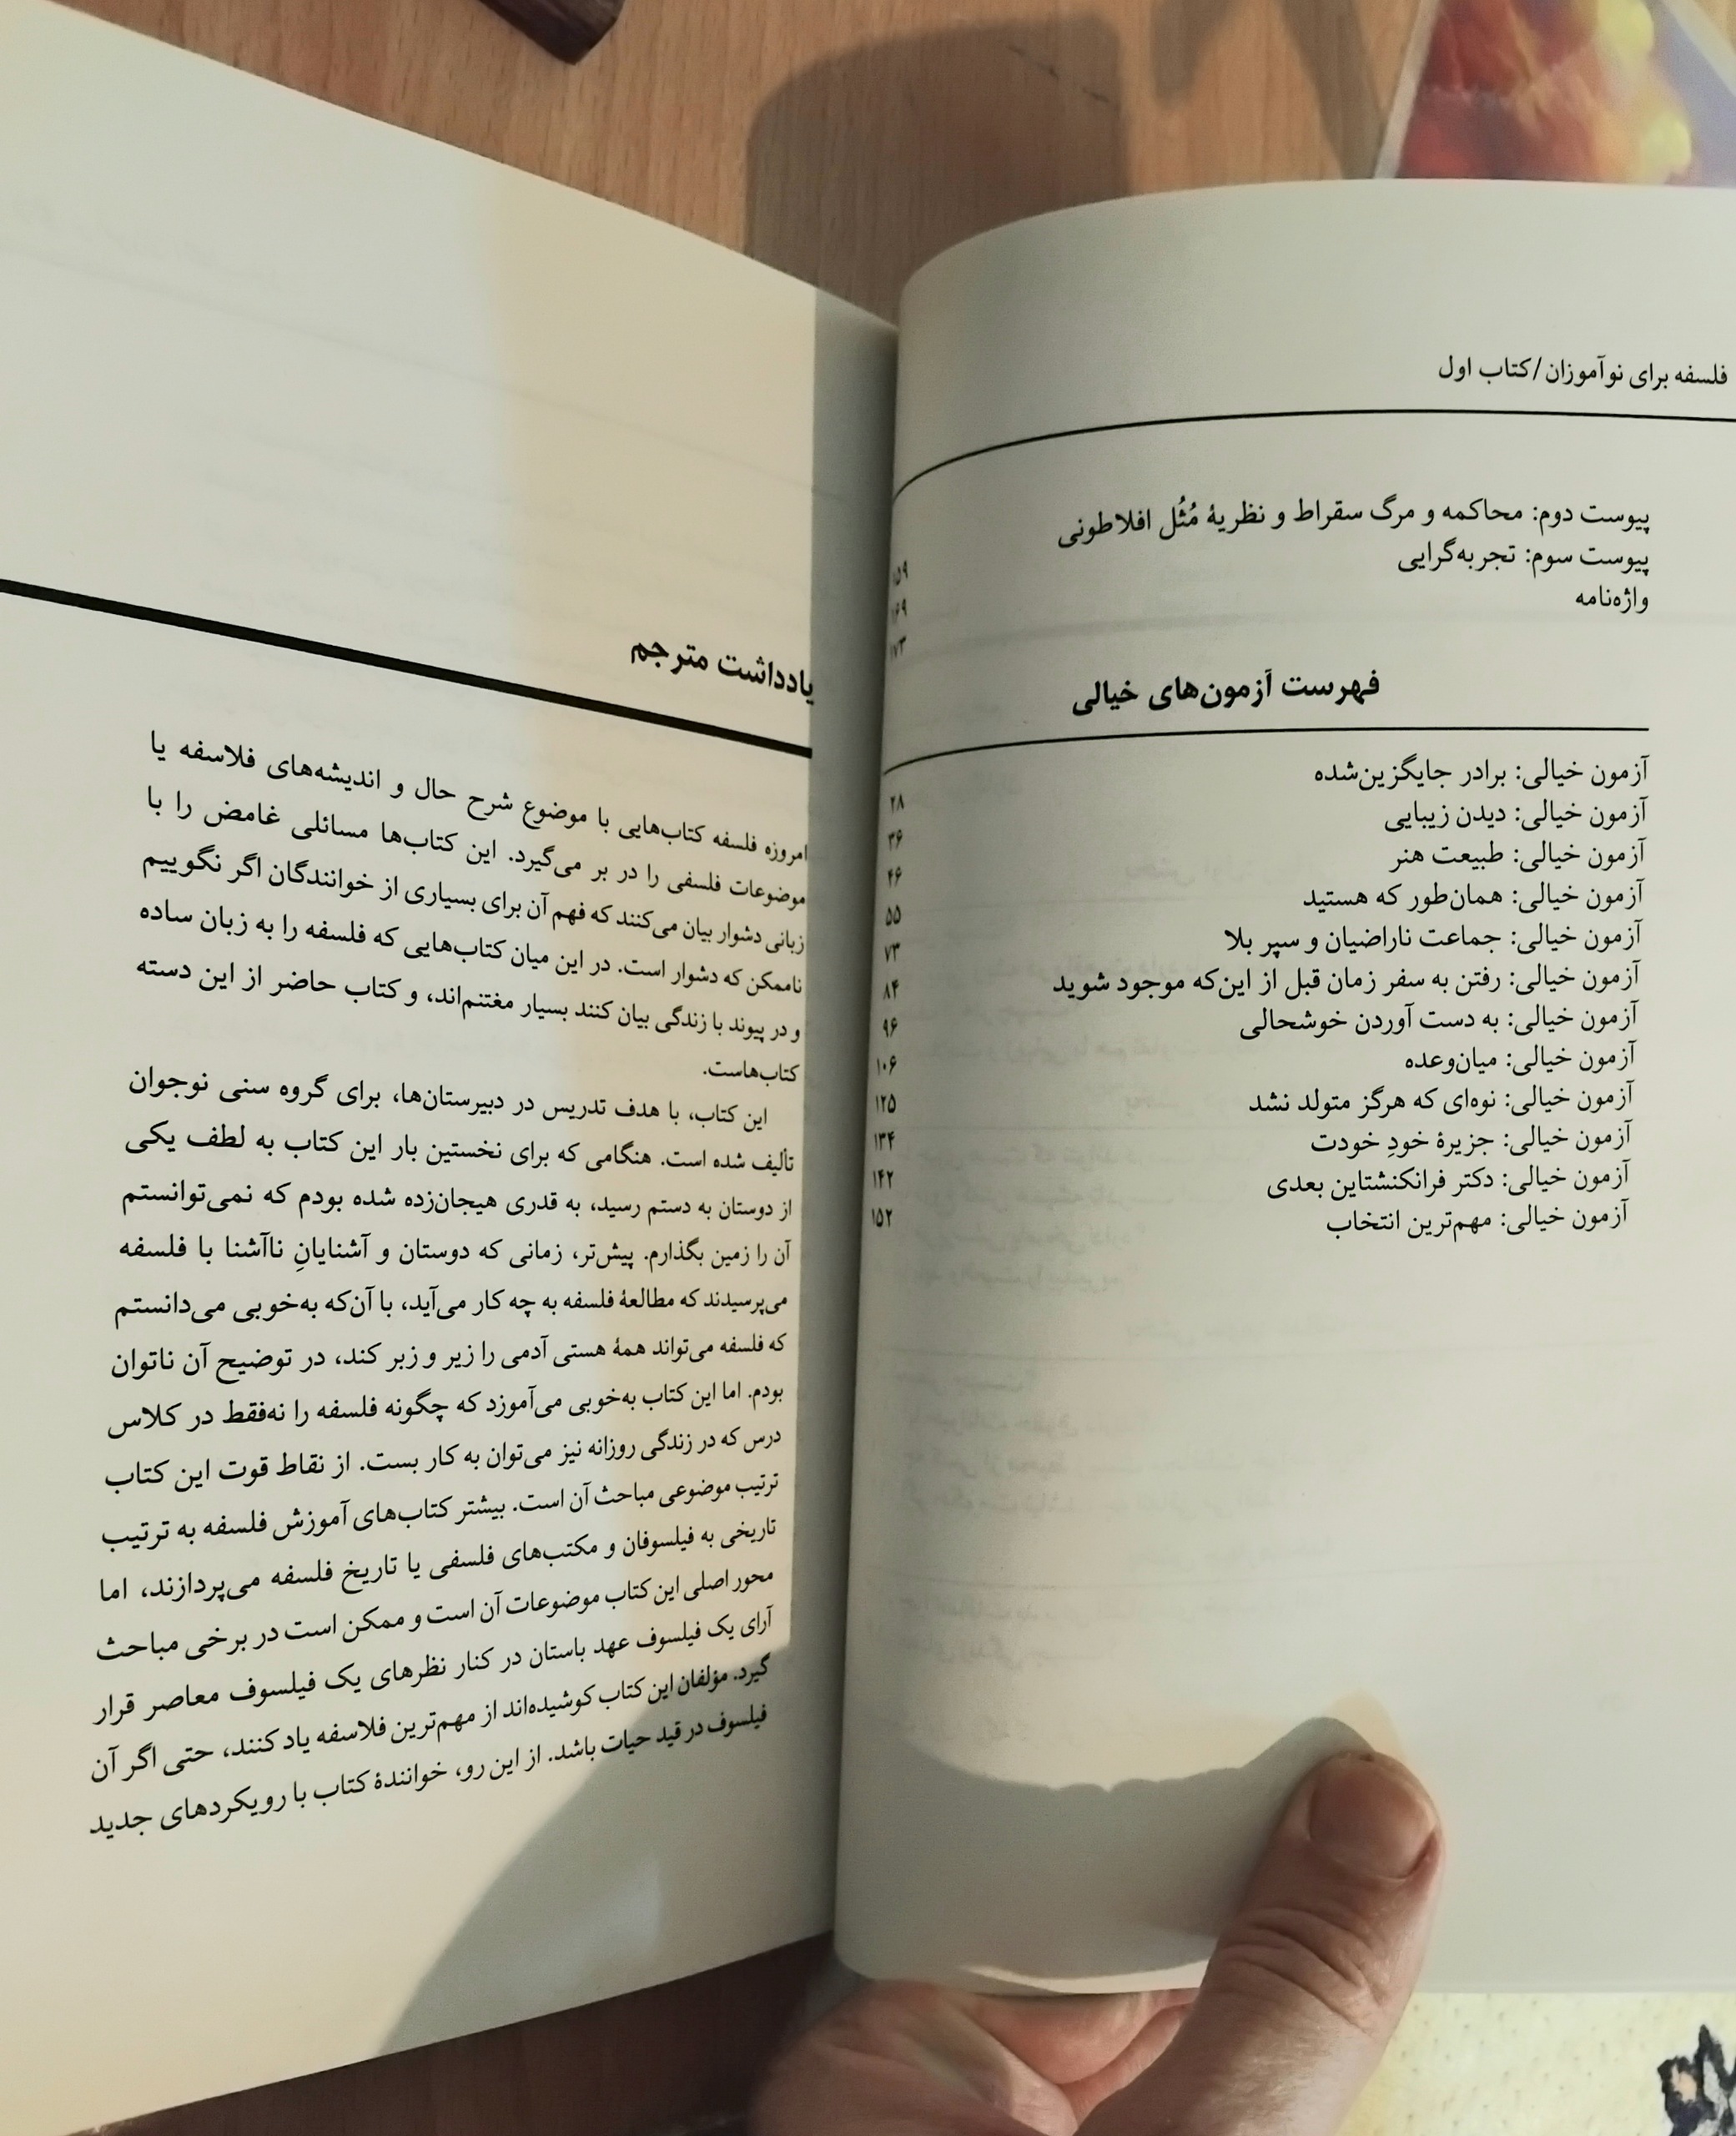 فلسفه برای نوآموزان/کتاب اول
پیوست دوم: محاکمه و مرگ سقراط و نظریهٔ مُثُل افلاطونی ۱۵۹
پیوست سوم: تجربه‌گرایی ۱۶۹
واژه‌نامه ۱۷۳
فهرست آزمون‌های خیالی
آزمون خیالی: برادر جایگزین‌شده ۲۸
آزمون خیالی: دیدن زیبایی ۳۶
آزمون خیالی: طبیعت هنر ۴۶
آزمون خیالی: همان‌طور که هستید ۵۵
آزمون خیالی: جماعت ناراضیان و سپر بلا ۷۳
آزمون خیالی: رفتن به سفر زمان قبل از این‌که موجود شوید ۸۴
آزمون خیالی: به دست آوردن خوشحالی ۹۶
آزمون خیالی: میان‌وعده ۱۰۶
آزمون خیالی: نوه‌ای که هرگز متولد نشد ۱۲۵
آزمون خیالی: جزیرهٔ خودِ خودت ۱۳۴
آزمون خیالی: دکتر فرانکنشتاین بعدی ۱۴۲
آزمون خیالی: مهم‌ترین انتخاب ۱۵۲
یادداشت مترجم
امروزه فلسفه کتاب‌هایی با موضوع شرح حال و اندیشه‌های فلاسفه یا
موضوعات فلسفی را در بر می‌گیرد. این کتاب‌ها مسائلی غامض را با
زبانی دشوار بیان می‌کنند که فهم آن برای بسیاری از خوانندگان اگر نگوییم
ناممکن که دشوار است. در این میان کتاب‌هایی که فلسفه را به زبان ساده
و در پیوند با زندگی بیان کنند بسیار مغتنم‌اند، و کتاب حاضر از این دسته
کتاب‌هاست.
این کتاب، با هدف تدریس در دبیرستان‌ها، برای گروه سنی نوجوان
تألیف شده است. هنگامی که برای نخستین بار این کتاب به لطف یکی
از دوستان به دستم رسید، به قدری هیجان‌زده شده بودم که نمی‌توانستم
آن را زمین بگذارم. پیش‌تر، زمانی که دوستان و آشنایانِ ناآشنا با فلسفه
می‌پرسیدند که مطالعهٔ فلسفه به چه کار می‌آید، با آن‌که به‌خوبی می‌دانستم
که فلسفه می‌تواند همهٔ هستی آدمی را زیر و زبر کند، در توضیح آن ناتوان
بودم. اما این کتاب به‌خوبی می‌آموزد که چگونه فلسفه را نه‌فقط در کلاس
درس که در زندگی روزانه نیز می‌توان به کار بست. از نقاط قوت این کتاب
ترتیب موضوعی مباحث آن است. بیشتر کتاب‌های آموزش فلسفه به ترتیب
تاریخی به فیلسوفان و مکتب‌های فلسفی یا تاریخ فلسفه می‌پردازند، اما
محور اصلی این کتاب موضوعات آن است و ممکن است در برخی مباحث
آرای یک فیلسوف عهد باستان در کنار نظرهای یک فیلسوف معاصر قرار
گیرد. مؤلفان این کتاب کوشیده‌اند از مهم‌ترین فلاسفه یاد کنند، حتی اگر آن
فیلسوف در قید حیات باشد. از این رو، خوانندهٔ کتاب با رویکردهای جدید